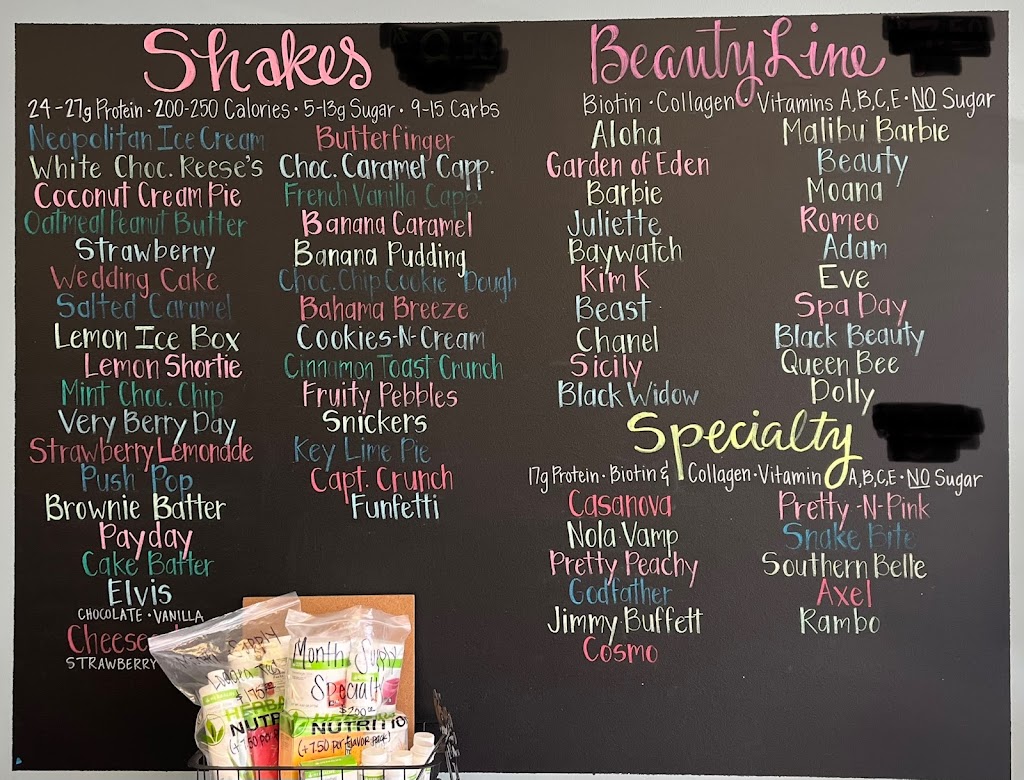 Shakes
24-27g Protein · 200-250 Calories · 5-13g Sugar · 9-15 Carbs
Neopolitan Ice Cream
White Choc. Reese's
Coconut Cream Pie
Oatmeal Peanut Butter
Strawberry
Wedding Cake
Salted Caramel
Lemon Ice Box
Lemon Shortie
Mint Choc. Chip
Very Berry Day
Strawberry Lemonade
Push Pop
Brownie Batter
Payday
Cake Batter
Elvis
CHOCOLATE · VANILLA
STRAWBERRY
Butterfinger
Choc. Caramel Capp.
French Vanilla Capp.
Banana Caramel
Banana Pudding
Choc. Chip Cookie Dough
Bahama Breeze
Cookies-N-Cream
Cinnamon Toast Crunch
Fruity Pebbles
Snickers
Key Lime Pie
Capt. Crunch
Funfetti
Beauty Line
Biotin · Collagen · Vitamins A,B,C,E · NO Sugar
Aloha
Garden of Eden
Barbie
Juliette
Baywatch
Kim K
Beast
Chanel
Sicily
Black Widow
Malibu Barbie
Beauty
Moana
Romeo
Adam
Eve
Spa Day
Black Beauty
Queen Bee
Dolly
Specialty
17g Protein · Biotin & Collagen · Vitamin A,B,C,E · NO Sugar
Casanova
Nola Vamp
Pretty Peachy
Godfather
Jimmy Buffett
Cosmo
Pretty-N-Pink
Snake Bite
Southern Belle
Axel
Rambo
Month Supply
Specialty
$200.00
NUTRITIO
(+7.50 per flavor pack)
$175
HERBA
NUTR
(+7.50 per